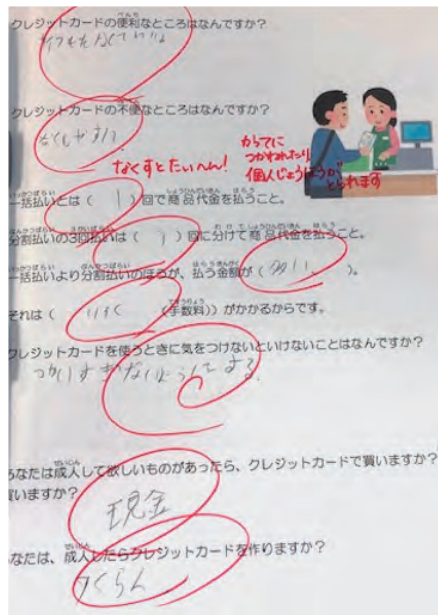 クレジットカードの便利なところはなんですか？
クレジットカードの不便なところはなんですか？
なくしやすい
なくすとたいへん！
かってに
つかわれたり
個人じょうほうが
とられます
一括払いとは（ 1 ）回で商品代金を払うこと。
分割払いの3回払いは（ ）回に分けて商品代金を払うこと。
一括払いより分割払いのほうが、払う金額が（ 多い ）。
それは（ （手数料））がかかるからです。
クレジットカードを使うときに気をつけないといけないことはなんですか？
つかいすぎないようにする
あなたは成人して欲しいものがあったら、クレジットカードで買いますか？
買いますか？
現金
なたは、成人したらクレジットカードを作りますか？
つくらん